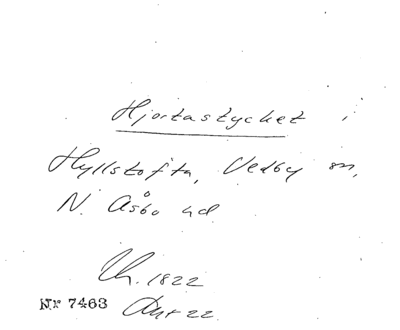 Hjortastycket i
Hyllstofta, Vedby sn,
N. Åsbo hd
Uh. 1822
Nr 7463
22